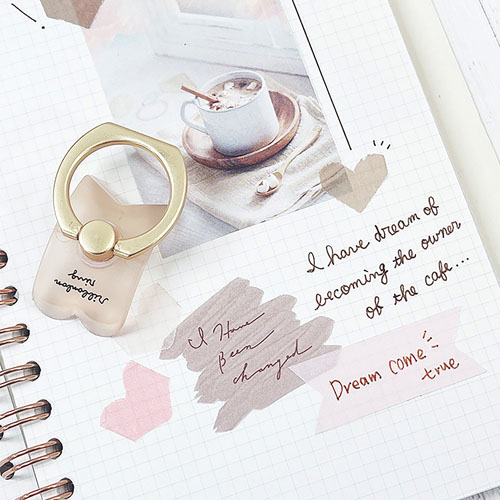 I have dream of
becoming the owner
of the cafe...
I Have
Been
changed
Dream come
true
ring